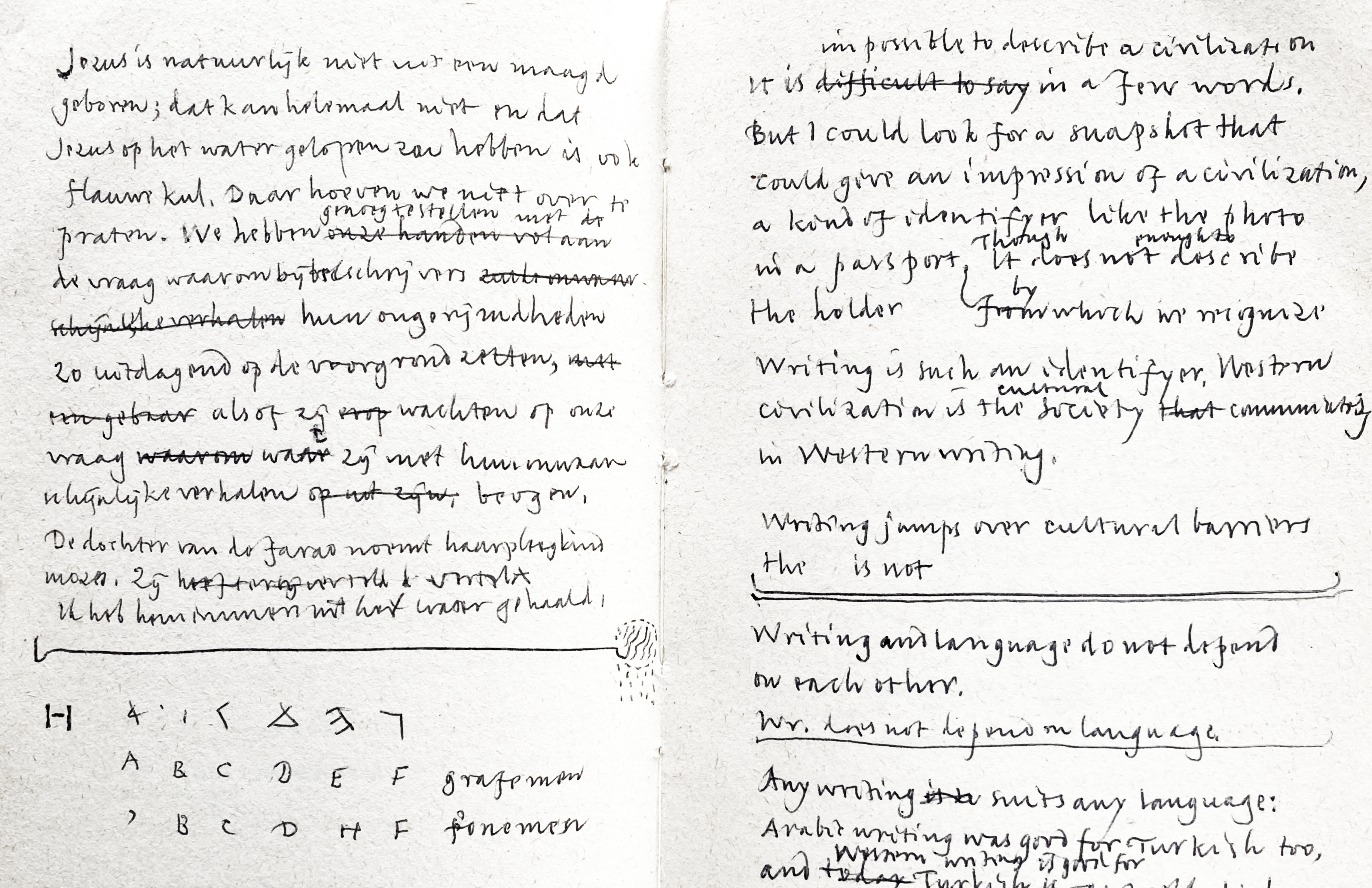 Jezus is natuurlijk niet uit een maagd
geboren; dat kan helemaal niet en dat
Jezus op het water gelopen zou hebben is ook
flauwekul. Daar hoeven we niet over te
genoeg te stellen met de
praten. We hebben onze handen vol aan
de vraag waarom bijbelschrijvers
schijnlijke verhalen hun ongerijmdheden
zo uitdagend op de voorgrond zetten, met
een gebaar alsof zij erop wachten op onze
vraag waarom waar zij met hun onwaar
schijnlijke verhalen op uit zijn, beogen.
De dochter van de farao noemt haar pleegkind
mozes. Zij vertelt
Ik heb hem immers uit het water gehaald.
A B C D E F grafemen
' B C D H F fonemen
impossible to describe a civilization
It is difficult to say in a few words.
But I could look for a snapshot that
could give an impression of a civilization,
a kind of identifyer like the photo
Though enough to
in a passport, It does not describe
by
the holder from which we recognize
Writing is such an identifyer. Western
cultural
civilization is the society that communicates
in Western writing.
Writing jumps over cultural barriers
the is not
Writing and language do not depend
on each other.
Wr. does not depend on language.
Any writing suits any language:
Arabic writing was good for Turkish too,
Western writing is good for
and today Turkish is